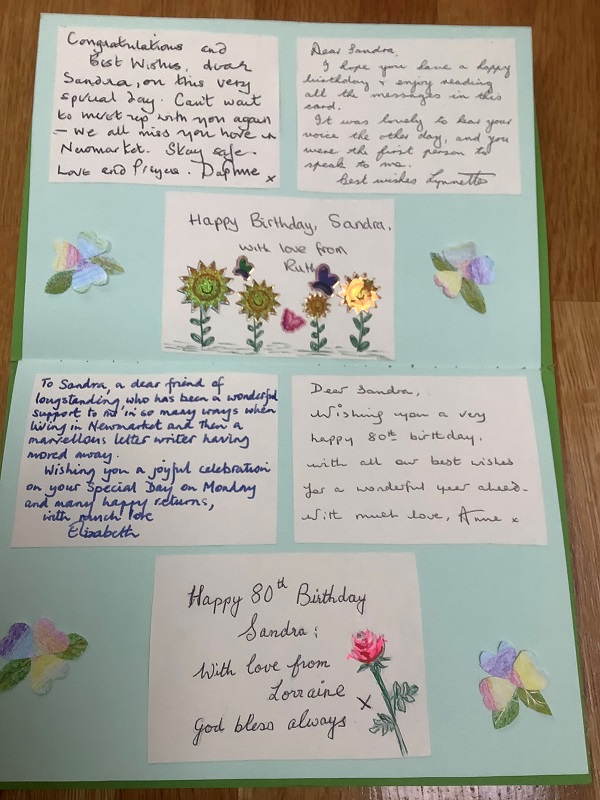 Congratulations and
Best Wishes, dear
Sandra, on this very
special day. Can't wait
to meet up with you again
– we all miss you here in
Newmarket. Stay safe.
Love and Prayers. Daphne x
Dear Sandra,
I hope you have a happy
birthday & enjoy reading
all the messages in this
card.
It was lovely to hear your
voice the other day, and you
were the first person to
speak to me.
Best wishes Lynnette
Happy Birthday, Sandra,
with love from
Ruth
To Sandra, a dear friend of
longstanding who has been a wonderful
support to me in so many ways when
living in Newmarket and then a
marvellous letter writer having
moved away.
Wishing you a joyful celebration
on your Special Day on Monday
and many happy returns,
with much love
Elizabeth
Dear Sandra,
Wishing you a very
happy 80th birthday.
with all our best wishes
for a wonderful year ahead.
With much love, Anne x
Happy 80th Birthday
Sandra:
With love from
Lorraine x
God bless always